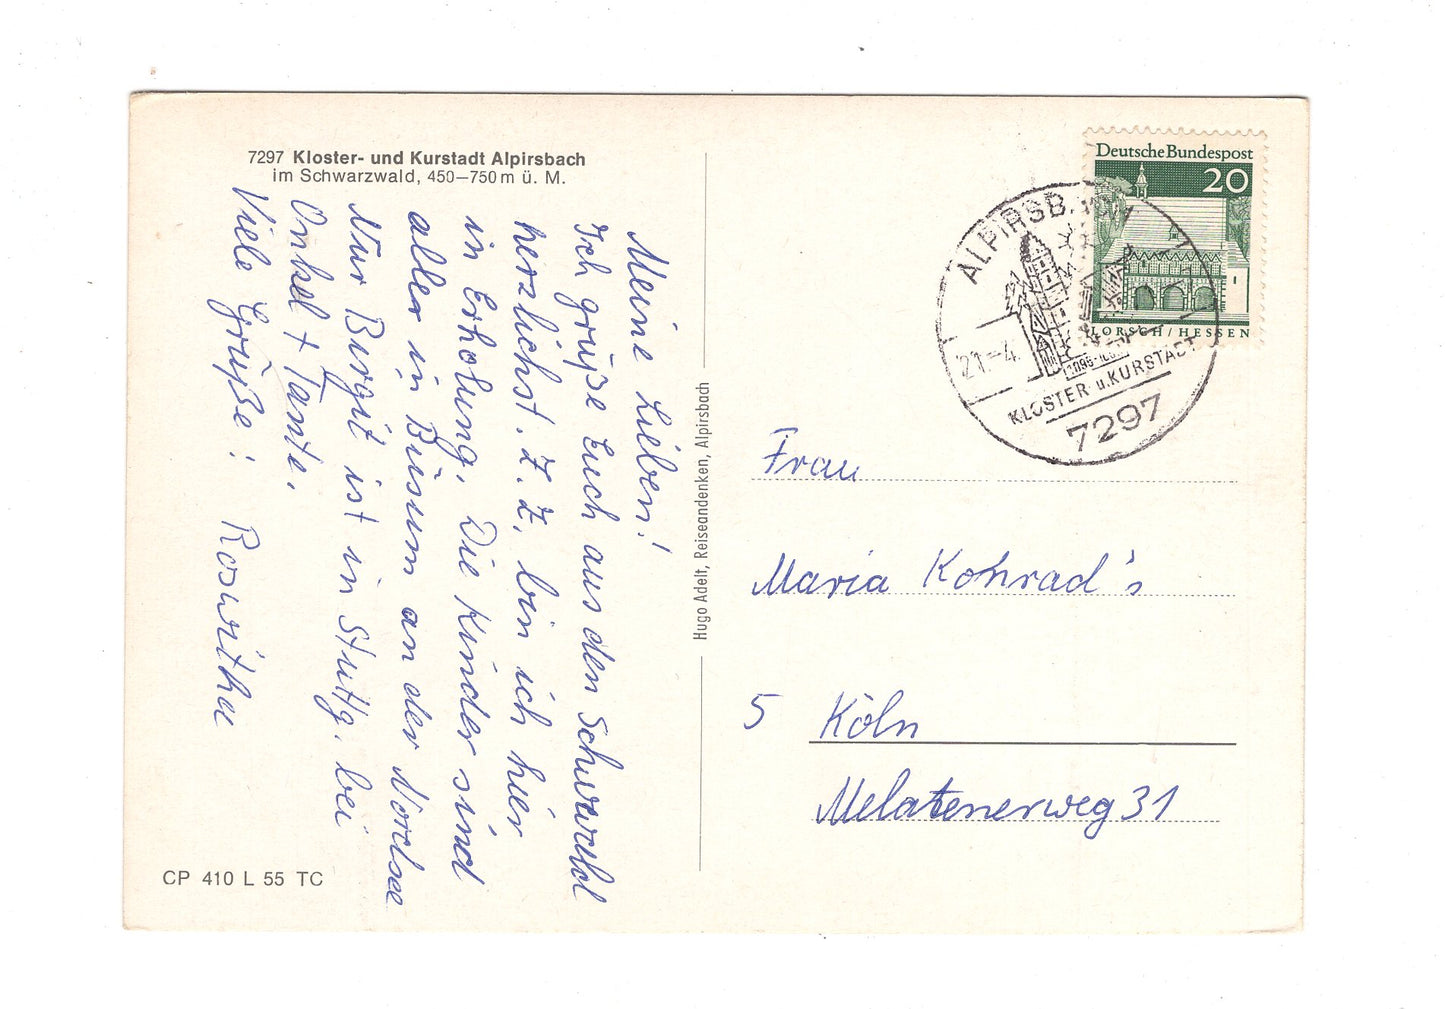 7297 Kloster- und Kurstadt Alpirsbach
im Schwarzwald, 450–750 m ü. M.
Meine Lieben!
Ich grüße Euch aus den Schwarzwald
herzlichst. Z. Z. bin ich hier
in Erholung. Die Kinder sind
aller in Büsum an der Nordsee
Nur Burgit ist in Stuttg. bei
Onkel + Tante.
Viele Grüße: Roswitha
CP 410 L 55 TC
Hugo Adelt, Reiseandenken, Alpirsbach
Deutsche Bundespost
20
LORSCH / HESSEN
ALPIRSB
21.-4.
KLOSTER u. KURSTADT
7297
Frau
Maria Konrad's
5 Köln
Melatenerweg 31